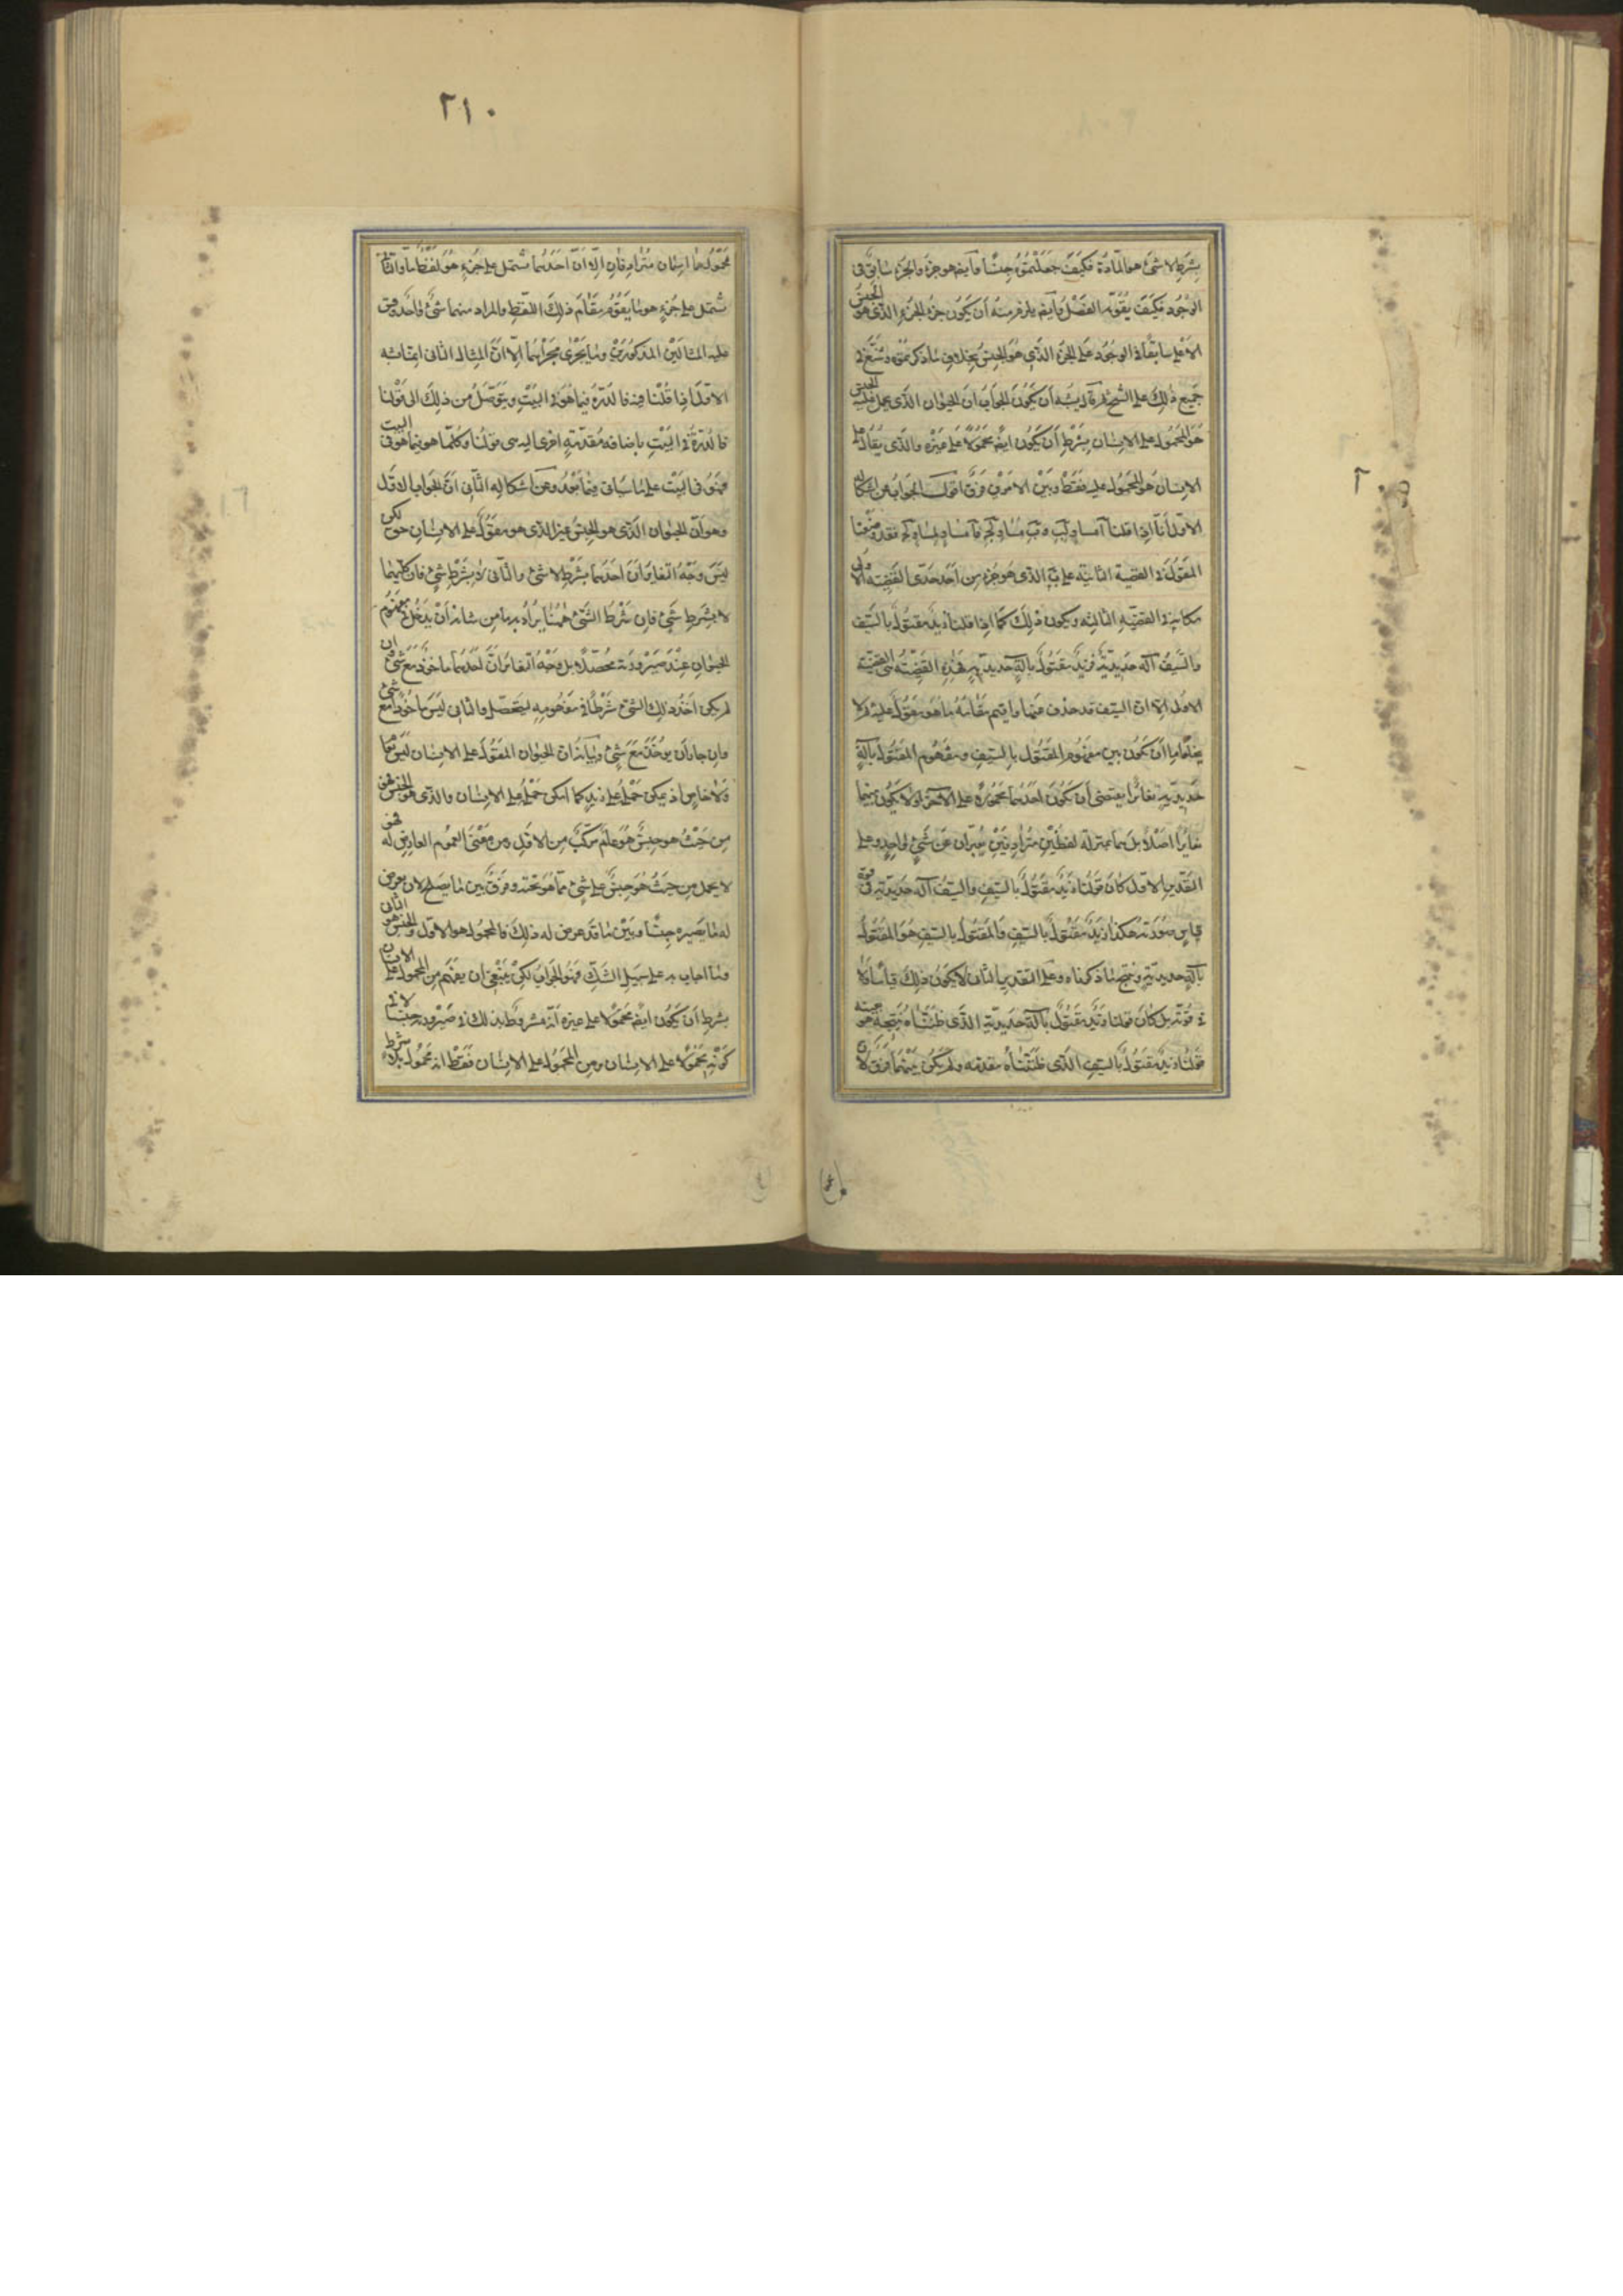 بشرط لا شئ هو المادّة فكيف جعلتموه جنسًا وأيضًا هو جزء والجزء سابق فى
الوجود فكيف يقوّمه الفصل وأيضًا يلزم منه أن يكون جزء الجزء الذى هو الجنس
الأعلى سابقًا فى الوجود على الجزء الذى هو الجنس بخلاف ما ذكرتموه
جميع ذلك على الشيخ ثم قال يشبه أن يكون الجواب أن الحيوان الذى يحمل عليه الجنس
هو المحمول على الانسان بشرط أن يكون ايضًا محمولًا على غيره والذى يقال على
الانسان هو المحمول عليه فقط وبين الامرين فرق أقول الجواب عن اشكاله
الاول أنّا اذا قلنا آ مساو لب وب مساو لج فآ مساو لمساو لج فقد وضعنا
المقول فى القضية الثانية على ب الذى هو جزء من أحد حدّى القضية الأولى
مكانه فى القضيّة الثالثة ويكون ذلك كما اذا قلنا زيد مقتول بالسّيف
والسّيف آلة حديديّة فزيد مقتول بآلة حديديّة فهذه القضيّة هى القضيّة
الاولى الّا ان السيف قد حذف منها واقيم مقامه ما هو مقول عليه ثم لا
يخلو اما أن يكون بين مفهوم المقتول بالسيف ومفهوم المقتول بآلة
حديديّة تغاير يقتضى أن يكون أحدهما محمولًا على الآخر او لا يكون بينهما
تغاير اصلًا بل هما بمنزلة لفظين مترادفين يعبّران عن شئ واحد وعلى
التقدير الاول كان قولنا زيد مقتول بالسّيف والسّيف آلة حديديّة فى قوة
قياس صورته هكذا زيد مقتول بالسّيف والمقتول بالسيف هو المقتول
بآلة حديديّة وينتج ما ذكرناه وعلى التقدير الثانى لا يكون ذلك قياسًا ولا
فى قوّته بل كان قولنا زيد مقتول بآلة حديديّة الذى ظننّاه نتيجة هو بعينه
قولنا زيد مقتول بالسيف الذى ظننّاه مقدّمة ولم يكن بينهما فرق لان
٢١٠
محمولهما اسمان مترادفان الّا أنّ أحدهما يشتمل على جزء هو لفظ ما والثانى
يشتمل على جزء هو ما يقوم مقام ذلك اللفظ والمراد منهما شئ واحد وقس
عليه المثالين المذكورين وما يجرى مجراهما الّا أنّ المثال الثانى انما يشبه
الاوّل اذا قلنا فيه فالدرّة فيما هو فى البيت ويتوصّل من ذلك الى قولنا
فالدرّة فى البيت باضافة مقدّمة اخرى اليه هى قولنا وكلّما هو فيما هو فى البيت
فهو فى البيت على ما سيأتى فيما بعد وعن اشكاله الثّانى أنّ الجواب الاول
وهو أنّ الحيوان الذى هو الجنس غير الذى هو مقول على الانسان حق لكن
ليس وجه التغاير أنّ أحدهما بشرط لا شئ والثانى لا بشرط شئ فان كليهما
لا بشرط شئ فان شرط الشئ ههنا يراد به ما من شأنه أن يدخل فى مفهوم
الحيوان عند صيرورته محصّلًا بل وجه التغاير أنّ أحدهما مأخوذ مع شئ وان
لم يكن اخذ ذلك الشئ شرطًا فى مفهومه ليتحصّل والثانى ليس مأخوذًا مع شئ
وان جاز أن يؤخذ مع شئ وبيانه ان الحيوان المقول على الانسان ليس بعام
ولا خاص اذ يمكن حمله على زيد كما امكن حمله على الانسان والذى هو الجنس فهو
من حيث هو جنس هو عام مركّب من الاول ومن معنى العموم العارض له فهو
لا يحمل من حيث هو جنس على شئ ممّا هو تحته وفرق بين ما يصلح لان يعرض
له ما يصير به جنسًا وبين ما قد عرض له ذلك فالمحمول هو الاول والجنس هو الثانى
وما أجاب به على سبيل الشكّ فهو الجواب لكن ينبغى ان يفهم من المحمول على الانسان
بشرط أن يكون ايضًا محمولًا على غيره أنّه مشروط بذلك فى صيرورته جنسًا لا فى
كونه محمولًا على الانسان ومن المحمول على الانسان فقط انه محمول بلا شرط